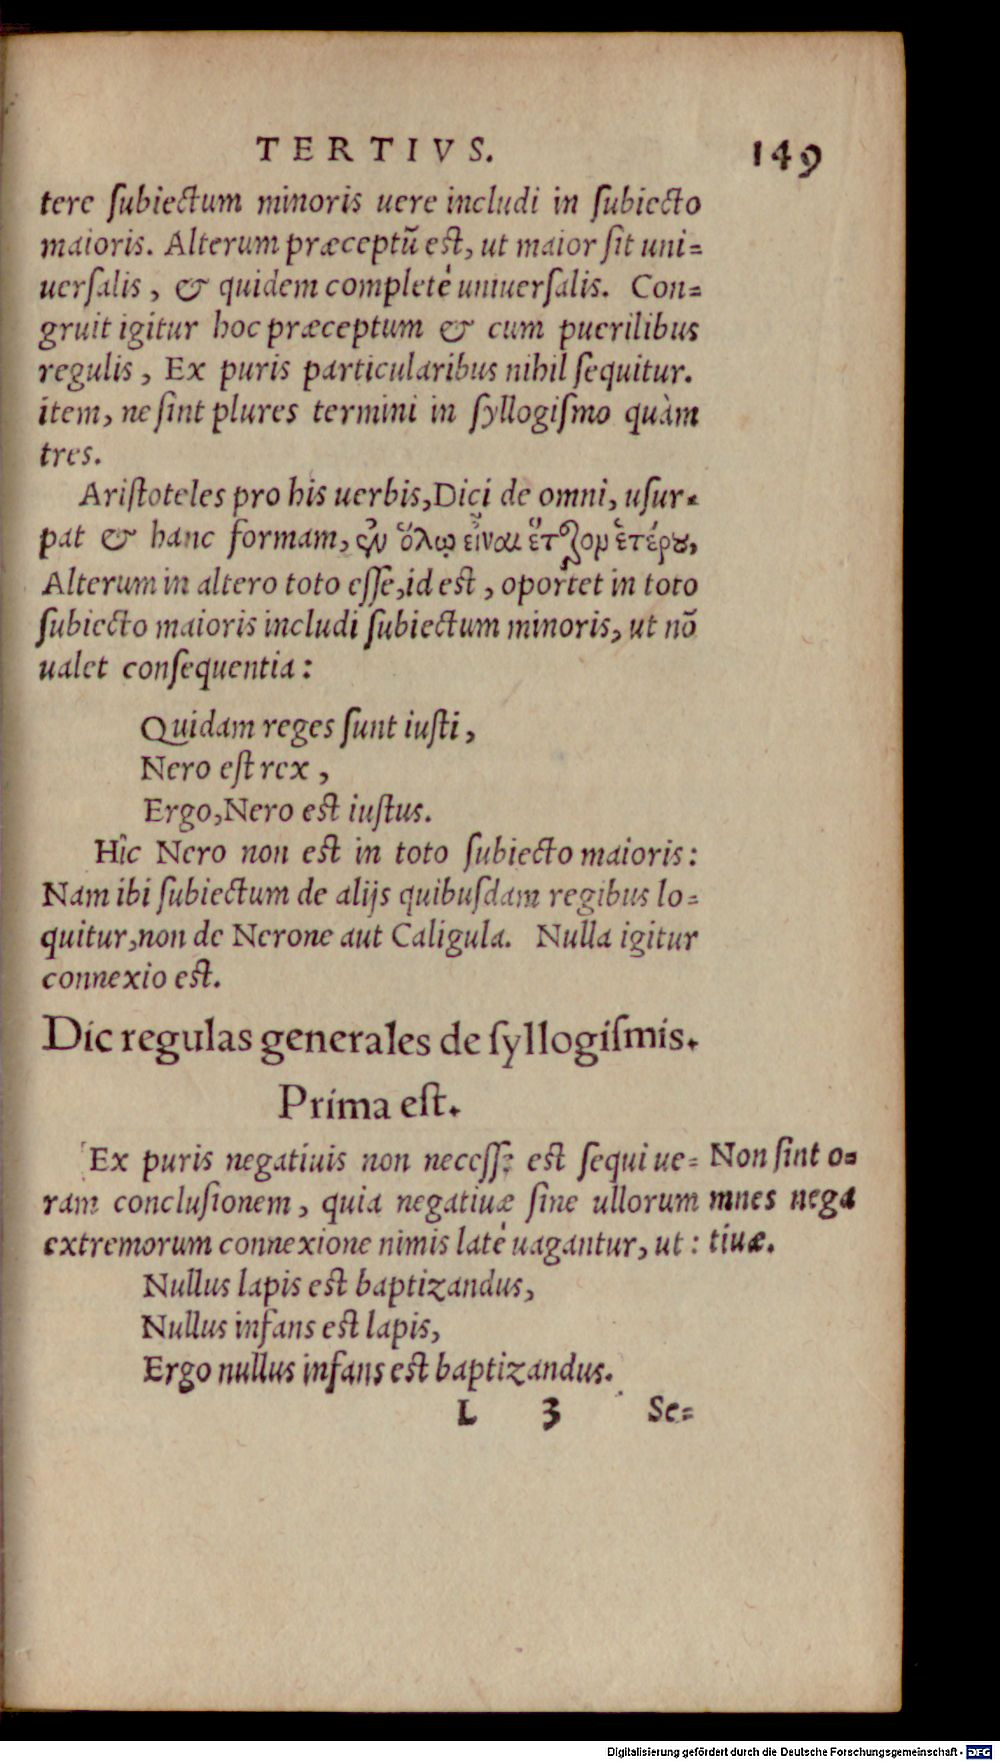 TERTIVS. 149
tere ſubiectum minoris uere includi in ſubiecto
maioris. Alterum præceptũ est, ut maior ſit uni=
uerſalis, & quidem completè uniuerſalis. Con=
gruit igitur hoc præceptum & cum puerilibus
regulis, Ex puris particularibus nihil ſequitur.
item, ne ſint plures termini in ſyllogiſmo quàm
tres.
Ariſtoteles pro his uerbis, Dici de omni, uſur=
pat & hanc formam, ἐν ὅλῳ εἶναι ἕτερον ἑτέρου,
Alterum in altero toto eſſe, id est, oportet in toto
ſubiecto maioris includi ſubiectum minoris, ut nõ
ualet conſequentia:
Quidam reges ſunt iuſti,
Nero eſt rex,
Ergo, Nero est iuſtus.
Hîc Nero non est in toto ſubiecto maioris:
Nam ibi ſubiectum de alijs quibuſdam regibus lo=
quitur, non de Nerone aut Caligula. Nulla igitur
connexio est.
Dic regulas generales de ſyllogiſmis.
Prima eſt.
Ex puris negatiuis non neceſſe est ſequi ue=
ram concluſionem, quia negatiuæ ſine ullorum
extremorum connexione nimis latè uagantur, ut:
Non ſint o=
mnes nega
tiuæ.
Nullus lapis est baptizandus,
Nullus infans est lapis,
Ergo nullus infans est baptizandus.
L 3 Se=
Digitalisierung gefördert durch die Deutsche Forschungsgemeinschaft - DFG